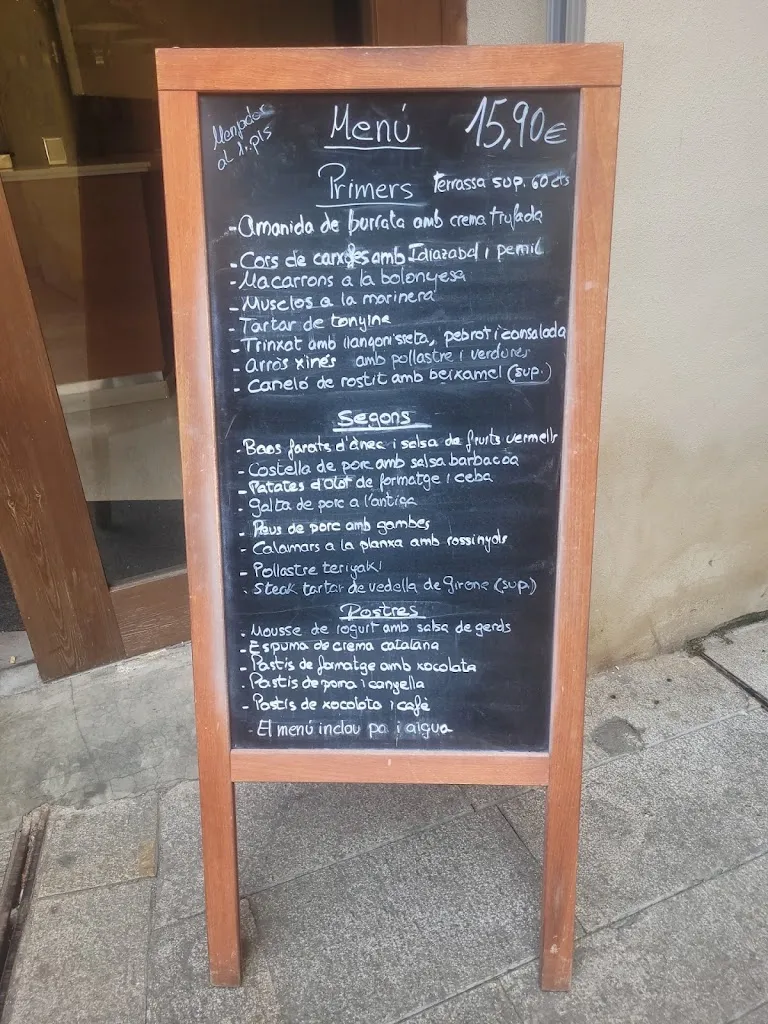 Menjador
al 1. pis
Menú
15,90€
Primers
Terrassa sup. 60 cts
- Amanida de burrata amb crema trufada
- Cors de carxofes amb Idiazabal i pernil
- Macarrons a la bolonyesa
- Musclos a la marinera
- Tartar de tonyina
- Trinxat amb llangonisseta, pebrot i cansalada
- Arròs xinés amb pollastre i verdures
- Caneló de rostit amb beixamel (sup.)
Segons
- Baos farcits d'ànec i salsa de fruits vermells
- Costella de porc amb salsa barbacoa
- Patates d'Olot de formatge i ceba
- Galta de porc a l'antiga
- Peus de porc amb gambes
- Calamars a la planxa amb rossinyols
- Pollastre teriyaki
- Steak tartar de vedella de girona (sup.)
Postres
- Mousse de iogurt amb salsa de gerds
- Espuma de crema catalana
- Pastis de formatge amb xocolata
- Pastis de poma i canyella
- Pastis de xocolata i cafè
- El menú inclou pa i aigua